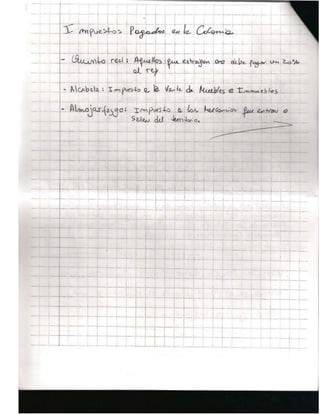 Impuestos Pagados en la Colonia
- Quinto real: Aquellos que extraigan oro debe pagar un 20%
al rey
- Alcabala: Impuesto a la Venta de Muebles e Inmuebles
- Almojarifazgo: Impuesto a las mercancías que entran o
salen del territorio.